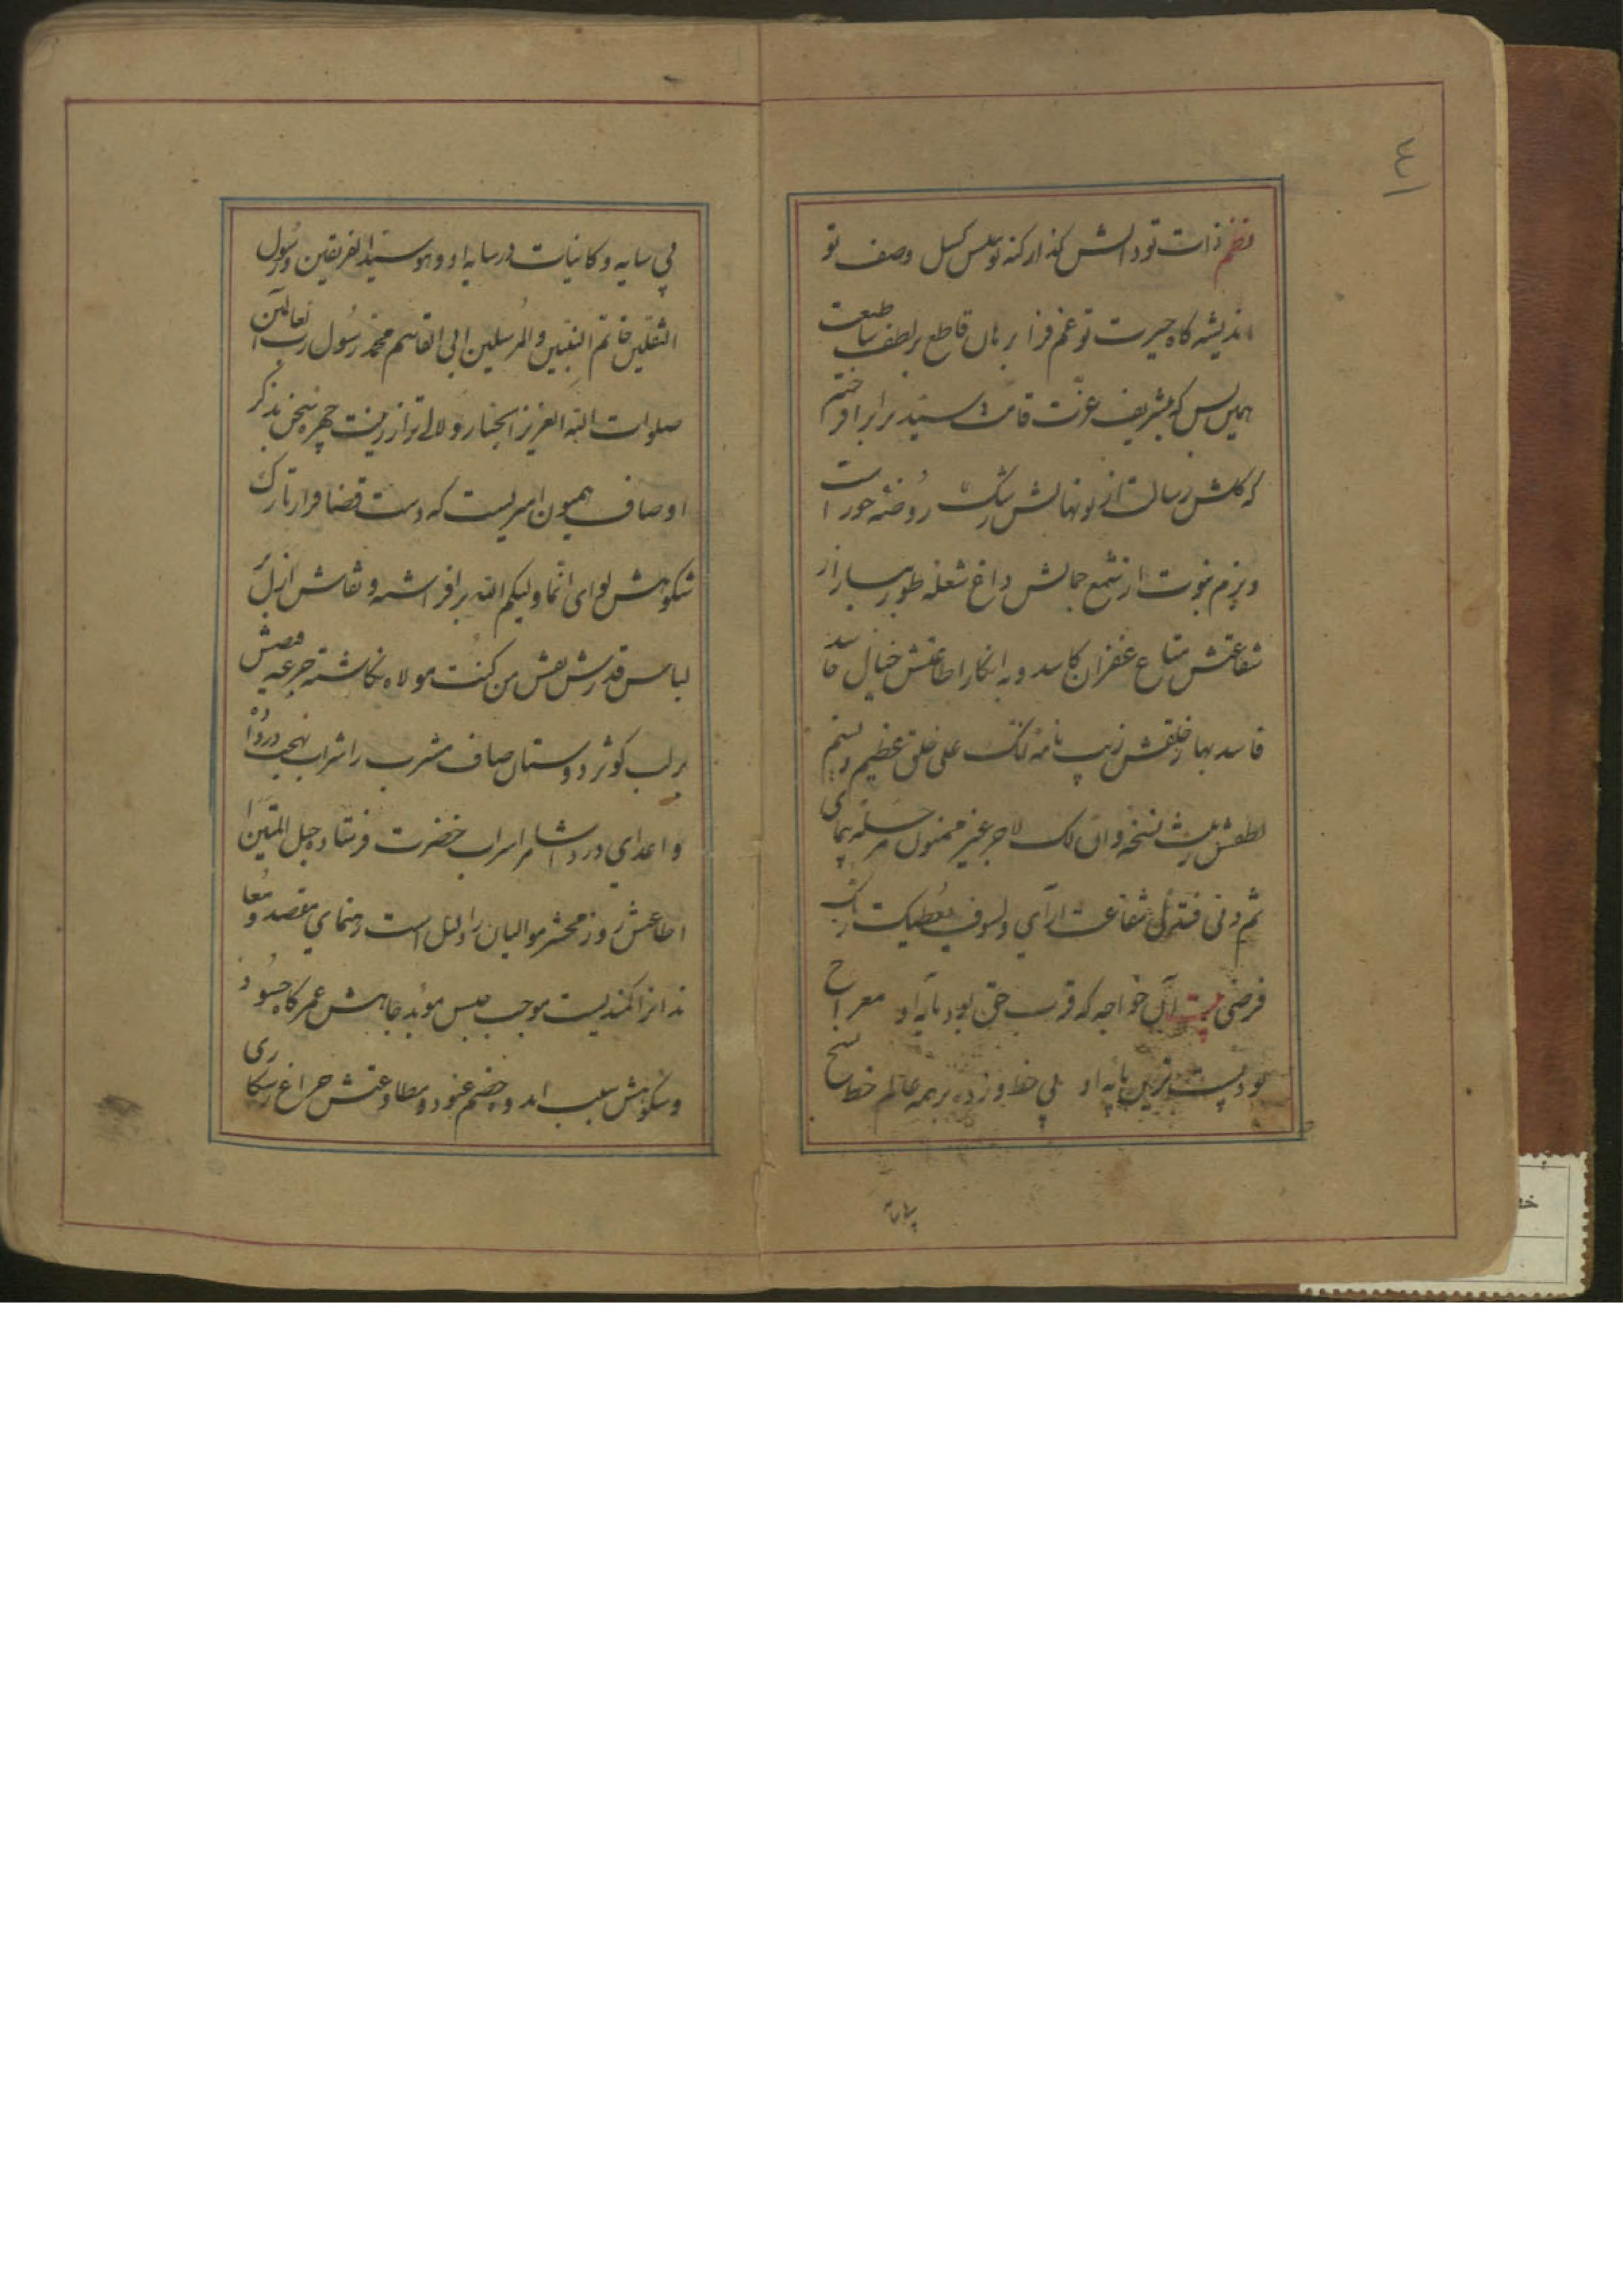 نظم ذات تو دانش گداز کنه تو بس کسل وصف تو
اندیشه کاه حیرت تو غم فزا برهان قاطع بر لطف طبیعت
همین بس که بتشریف عزت قامت سید برابر افراختم
که گلشن رسالت از نونهالش رشک روضه حورا است
و بزم نبوت از شمع جمالش داغ شعله طور بسیار از
شفاعتش متاع غفران کاسد و به انکار اطاعتش خیال حاسد
فاسد بهار خلقش زیب نامه انک علی خلق عظیم و نسیم
لطفش نسخه وان لک لاجر غیر ممنون مرحله پیمای
ثم دنی فتدلی شفاعت آرای ولسوف یعطیک ربک
فرضی بیت آن خواجه که قرب حق بود مایه او معراج
بود پست‌ترین پایه او بی خط و زده بر همه عالم خط نسخ
بی سایه
بی سایه و کاینات در سایه او وهو سید الفریقین و رسول
الثقلین خاتم النبیین والمرسلین ابی القاسم محمد رسول رب العالمین
صلوات الله العزیز الجبار و لالی زینت چهره سخن بذکر
اوصاف همیون امیریست که دست قضا فراز تارک
شکوهش لوای انما ولیکم الله برافراشته و نقاش ازل بر
لباس قدرش نقش من کنت مولاه نگاشته جرعه فیضش
بر لب کوثر دوستان صاف مشرب را شراب
و اعدای درد اشام را سراب حضرت فرستاده حبل المتین
اطاعتش روز محشر موالیان را دلیل است رهنمای مقصد و معا
ندانرا کمندیست موجب حبس موبد جاهش عمر کاه حسود
و شکوهش سلب خصم عنود و مطاوعتش چراغ رستگاری